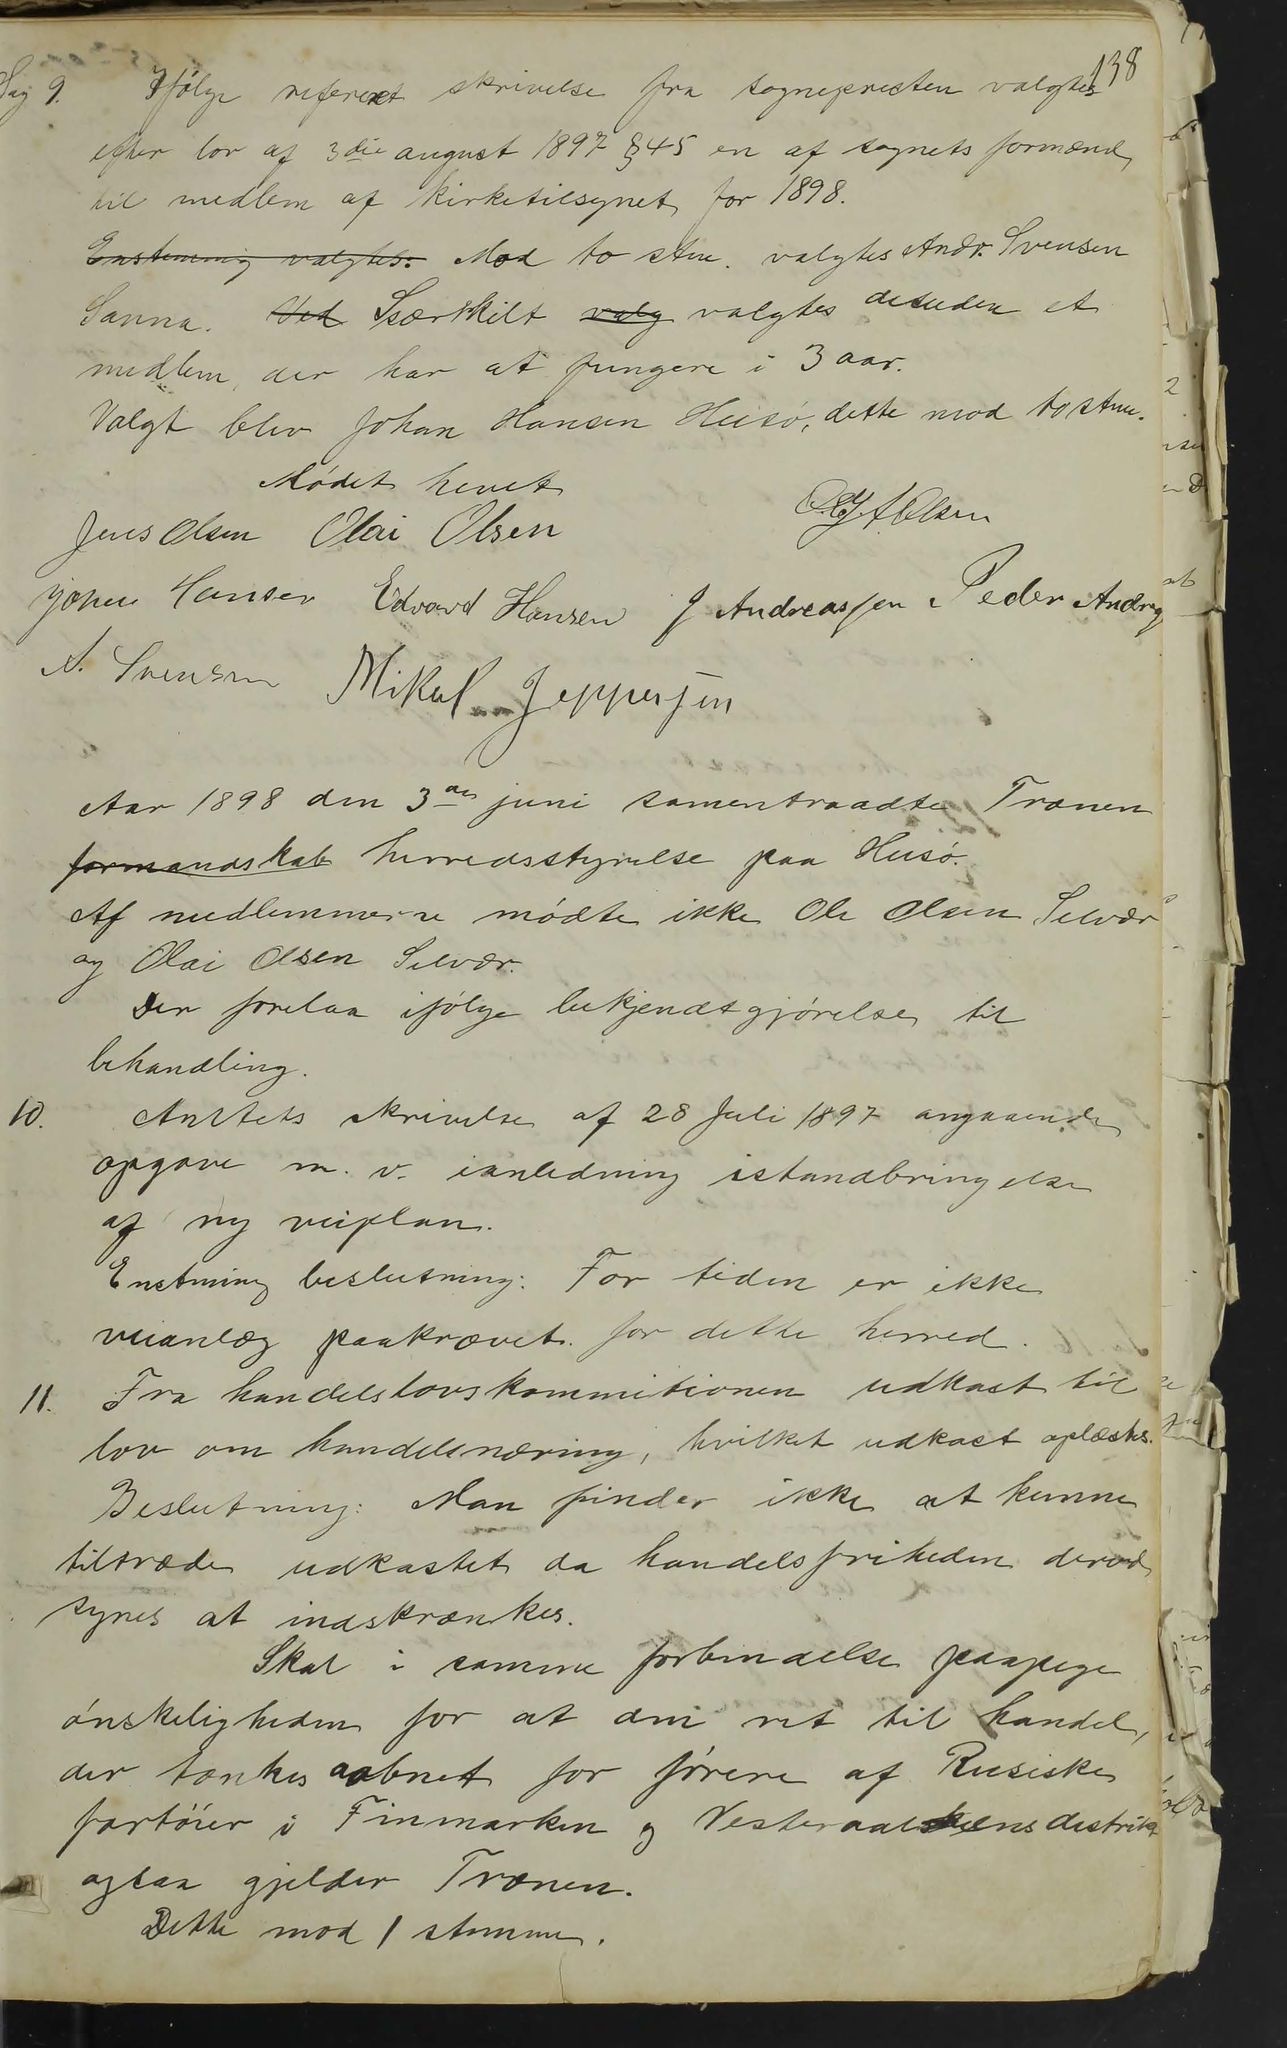 138
Sag 9. Ifølge referert skrivelse fra sognepresten valgtes
efter lov af 3die august 1897 § 45 en af sognets formænd
til medlem af kirketilsynet for 1898.
Enstemmig valgtes: Mod to stm. valgtes Andr. Svensen
Sanna. Ved Særskilt valg valgtes desuden et
medlem, der har at fungere i 3 aar.
Valgt blev Johan Hansen Husø, dette mod to stm.
Mødet hevet
Jens Olsen Olai Olsen Olsen
Hansen Edvard Hansen J Andreassen Peder Andrea
A. Svensen Mikal Jeppesen
Aar 1898 den 3die juni samentraadte Trænen
formandskab herredsstyrelse paa Husø.
Af medlemmerne mødte ikke Ole Olsen Selvær
og Olai Olsen Selvær.
Der forelaa ifølge bekjendtgjørelse til
behandling.
10. Amtets skrivelse af 28 Juli 1897 angaaende
opgave m. v. ianledning istandbringelse
af ny veiplan.
Enstemmig beslutning: For tiden er ikke
veianlæg paakrævet for dette herred.
11. Fra handelslovskommitionen udkast til
lov om handelsnæring, hvilket udkast oplæstes.
Beslutning: Man finder ikke at kunne
tiltræde udkastet da handelsfriheden derved
synes at indskrænkes.
Skal i samme forbindelse paapege
ønskeligheden for at den ret til handel,
der tænkes aabnet for førere af Rusiske
fartøier i Finmarken og Vesteraalens distrikt
ogsaa gjelder Trænen.
Dette mod 1 stemme.